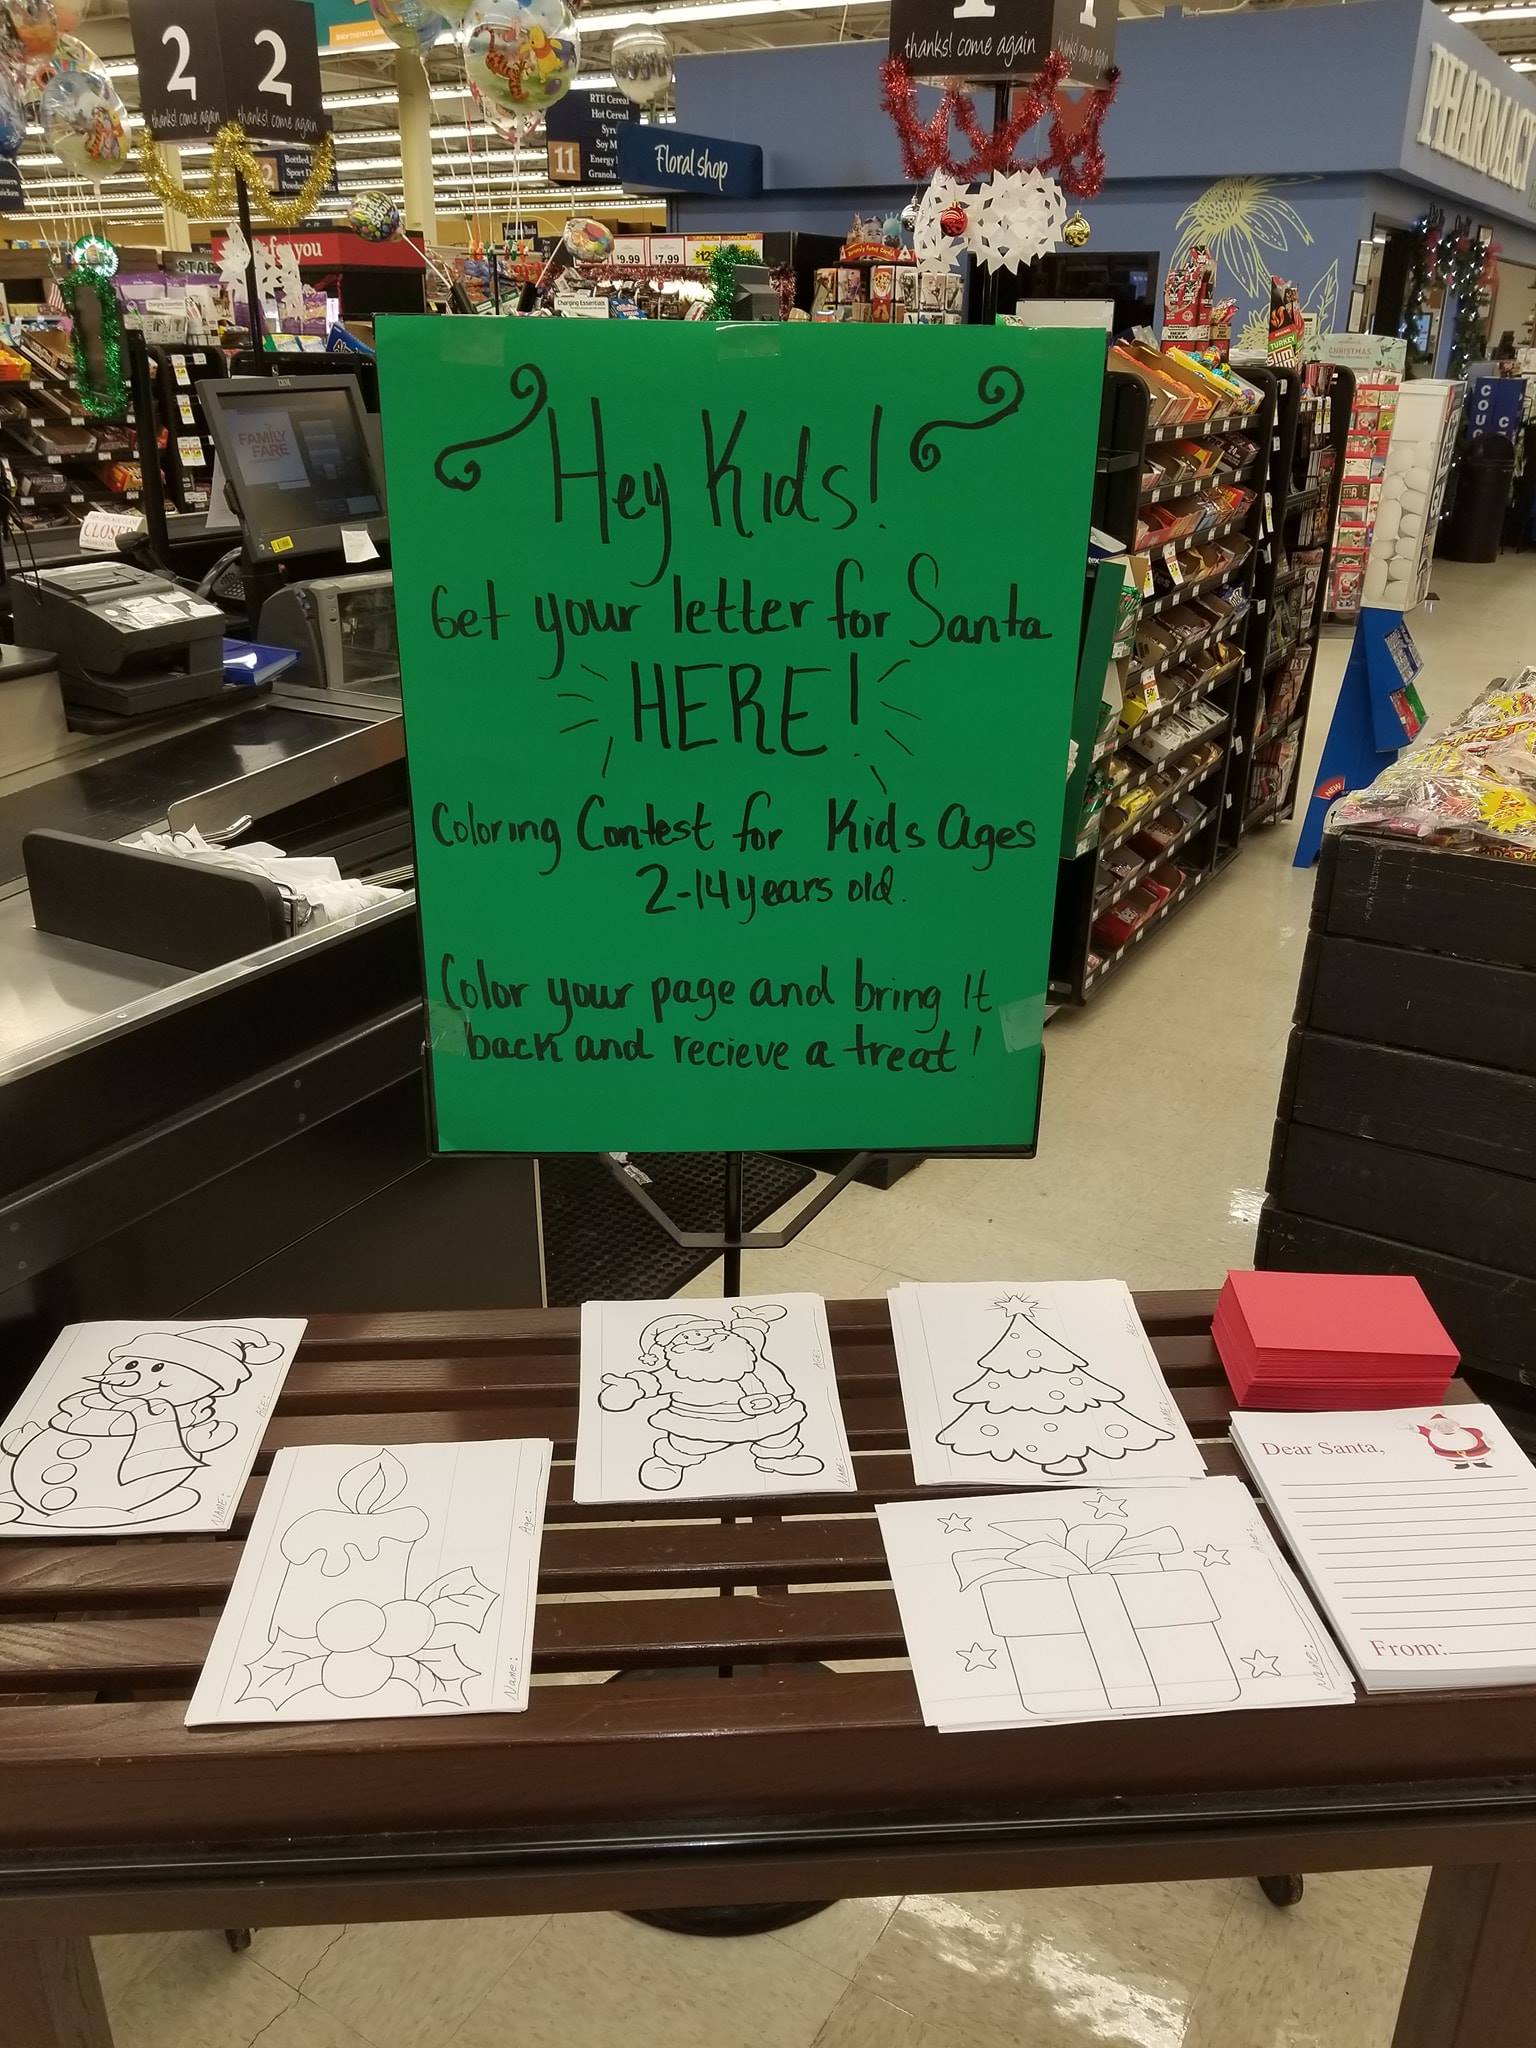 2
2
thanks! come again
thanks! come again
1
thanks! come again
RTE Cereal
Hot Cereal
11
Floral shop
PHARMACY
for you
$9.99
$7.99
Charging Essentials
FAMILY
FARE
IBM
CLOSED
CHRISTMAS
TURKEY
NEW
Hey Kids!
Get your letter for Santa
HERE!
Coloring Contest for Kids Ages
2-14 years old.
Color your page and bring It
back and recieve a treat!
NAME:
AGE:
Name:
Age:
NAME:
AGE:
NAME:
AGE:
Name:
Age:
Dear Santa,
From: